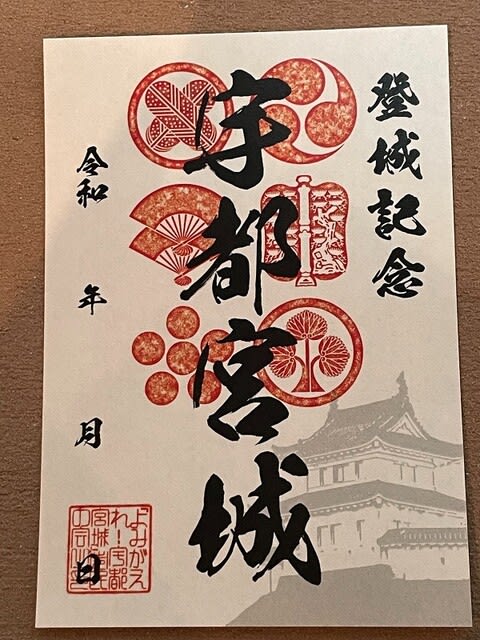 登城記念
宇都宮城
令和 年 月 日
よみがえ
れ！宇都
宮城市民
の会